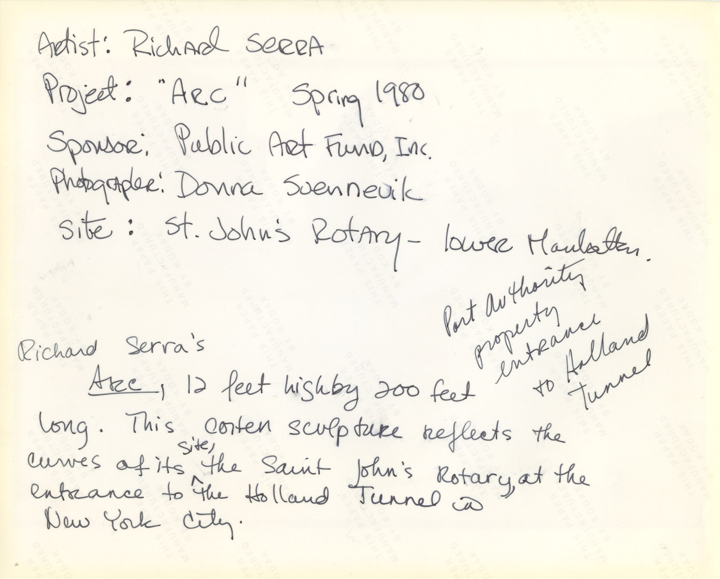 Artist: Richard SERRA
Project: "ARC" Spring 1980
Sponsor: Public Art Fund, Inc.
Photographer: Donna Svennevik
Site: St. John's Rotary – lower Manhattan.
Port Authority
property
entrance
to Holland
Tunnel
Richard Serra's
Arc, 12 feet high by 200 feet
long. This corten sculpture reflects the
curves of its site, the Saint John's Rotary, at the
entrance to the Holland Tunnel in
New York City.